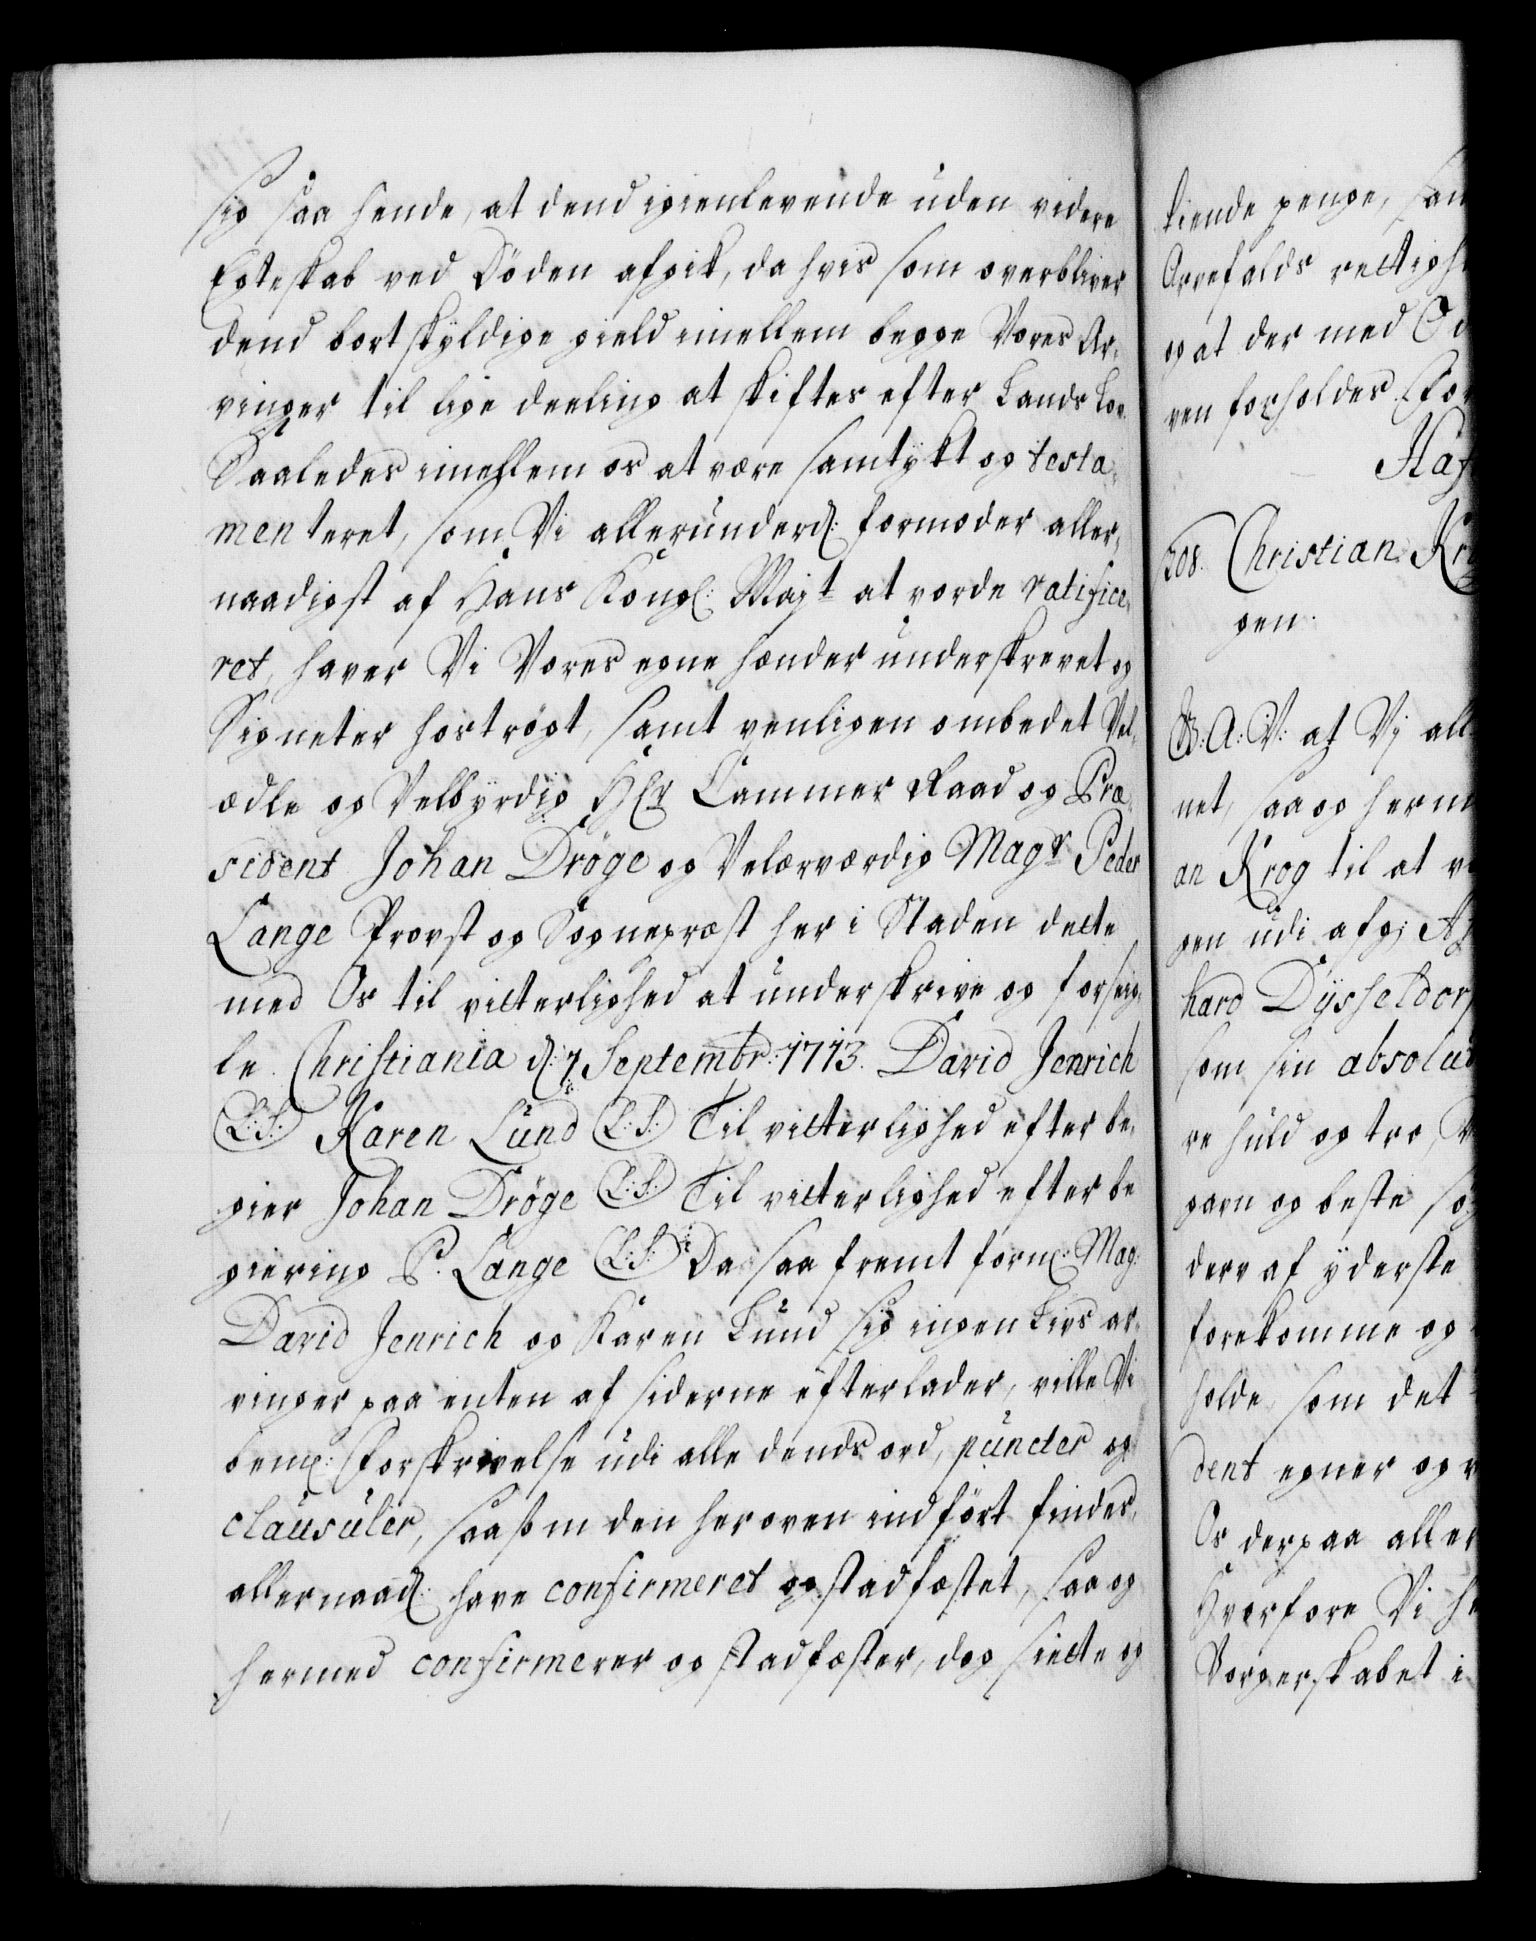 sig saa hende, at dend igienlevende uden videre
Egteskab ved Döden afgik, da hvis som overbliver
dend bortskyldige gield imellem begge Vores Ar¬
vinger til lige deeling at skiftes efter Lands Lov
Saaledes imellem os at være samtykt og testa¬
menteret, som Vi allerunderd: formoder aller¬
naadigst af Hans Kongl: Majt at vorde ratifice¬
ret, haver Vi Vores egne hænder underskrevet og
Signeter hoströgt, samt venligen ombedet Vel¬
ædle og Velbyrdig Hr Cammer Raad og Præ¬
sident Johan Dröge og Velærværdig Magr Peder
Lange Provst og Sognepræst her i Staden dette
med Os til vitterlighed at underskrive og forseig¬
le. Christiania d: 7 Septembr: 1713. David Jenrich
(L:S:) Karen Lund (L:S:) Til vitterlighed efter be¬
gier Johan Dröge (L:S:) Til vitterlighed efter be
giering P. Lange (L:S:) Da saafremt forn: Mag:
David Jenrich og Karen Lund sig ingen Livs ar¬
vinger paa enten af siderne efterlader, ville Vi
bem: Forskrivelse udi alle dends ord, puncter og
clausuler, saasom den her oven indfört findes,
allernaad: have confirmeret og stadfæstet, saa og
hermed confirmerer og stadfæster, dog siette og
tiende penge, sam
Arvefalds rettigh
og at der med
ven forholdes. For
Haf
508. Christian
gen.
B: A: V: at Vj all
net, saa og herm
an Krog til at
gen udi afg:
hard Dysseldor
som sin absolut
re huld og tro,
gavn og beste
derv af yderste
forekomme og
holde, som det
dent egner og
Os derpaa aller
Hvorfore Vi
Borgerskabet i